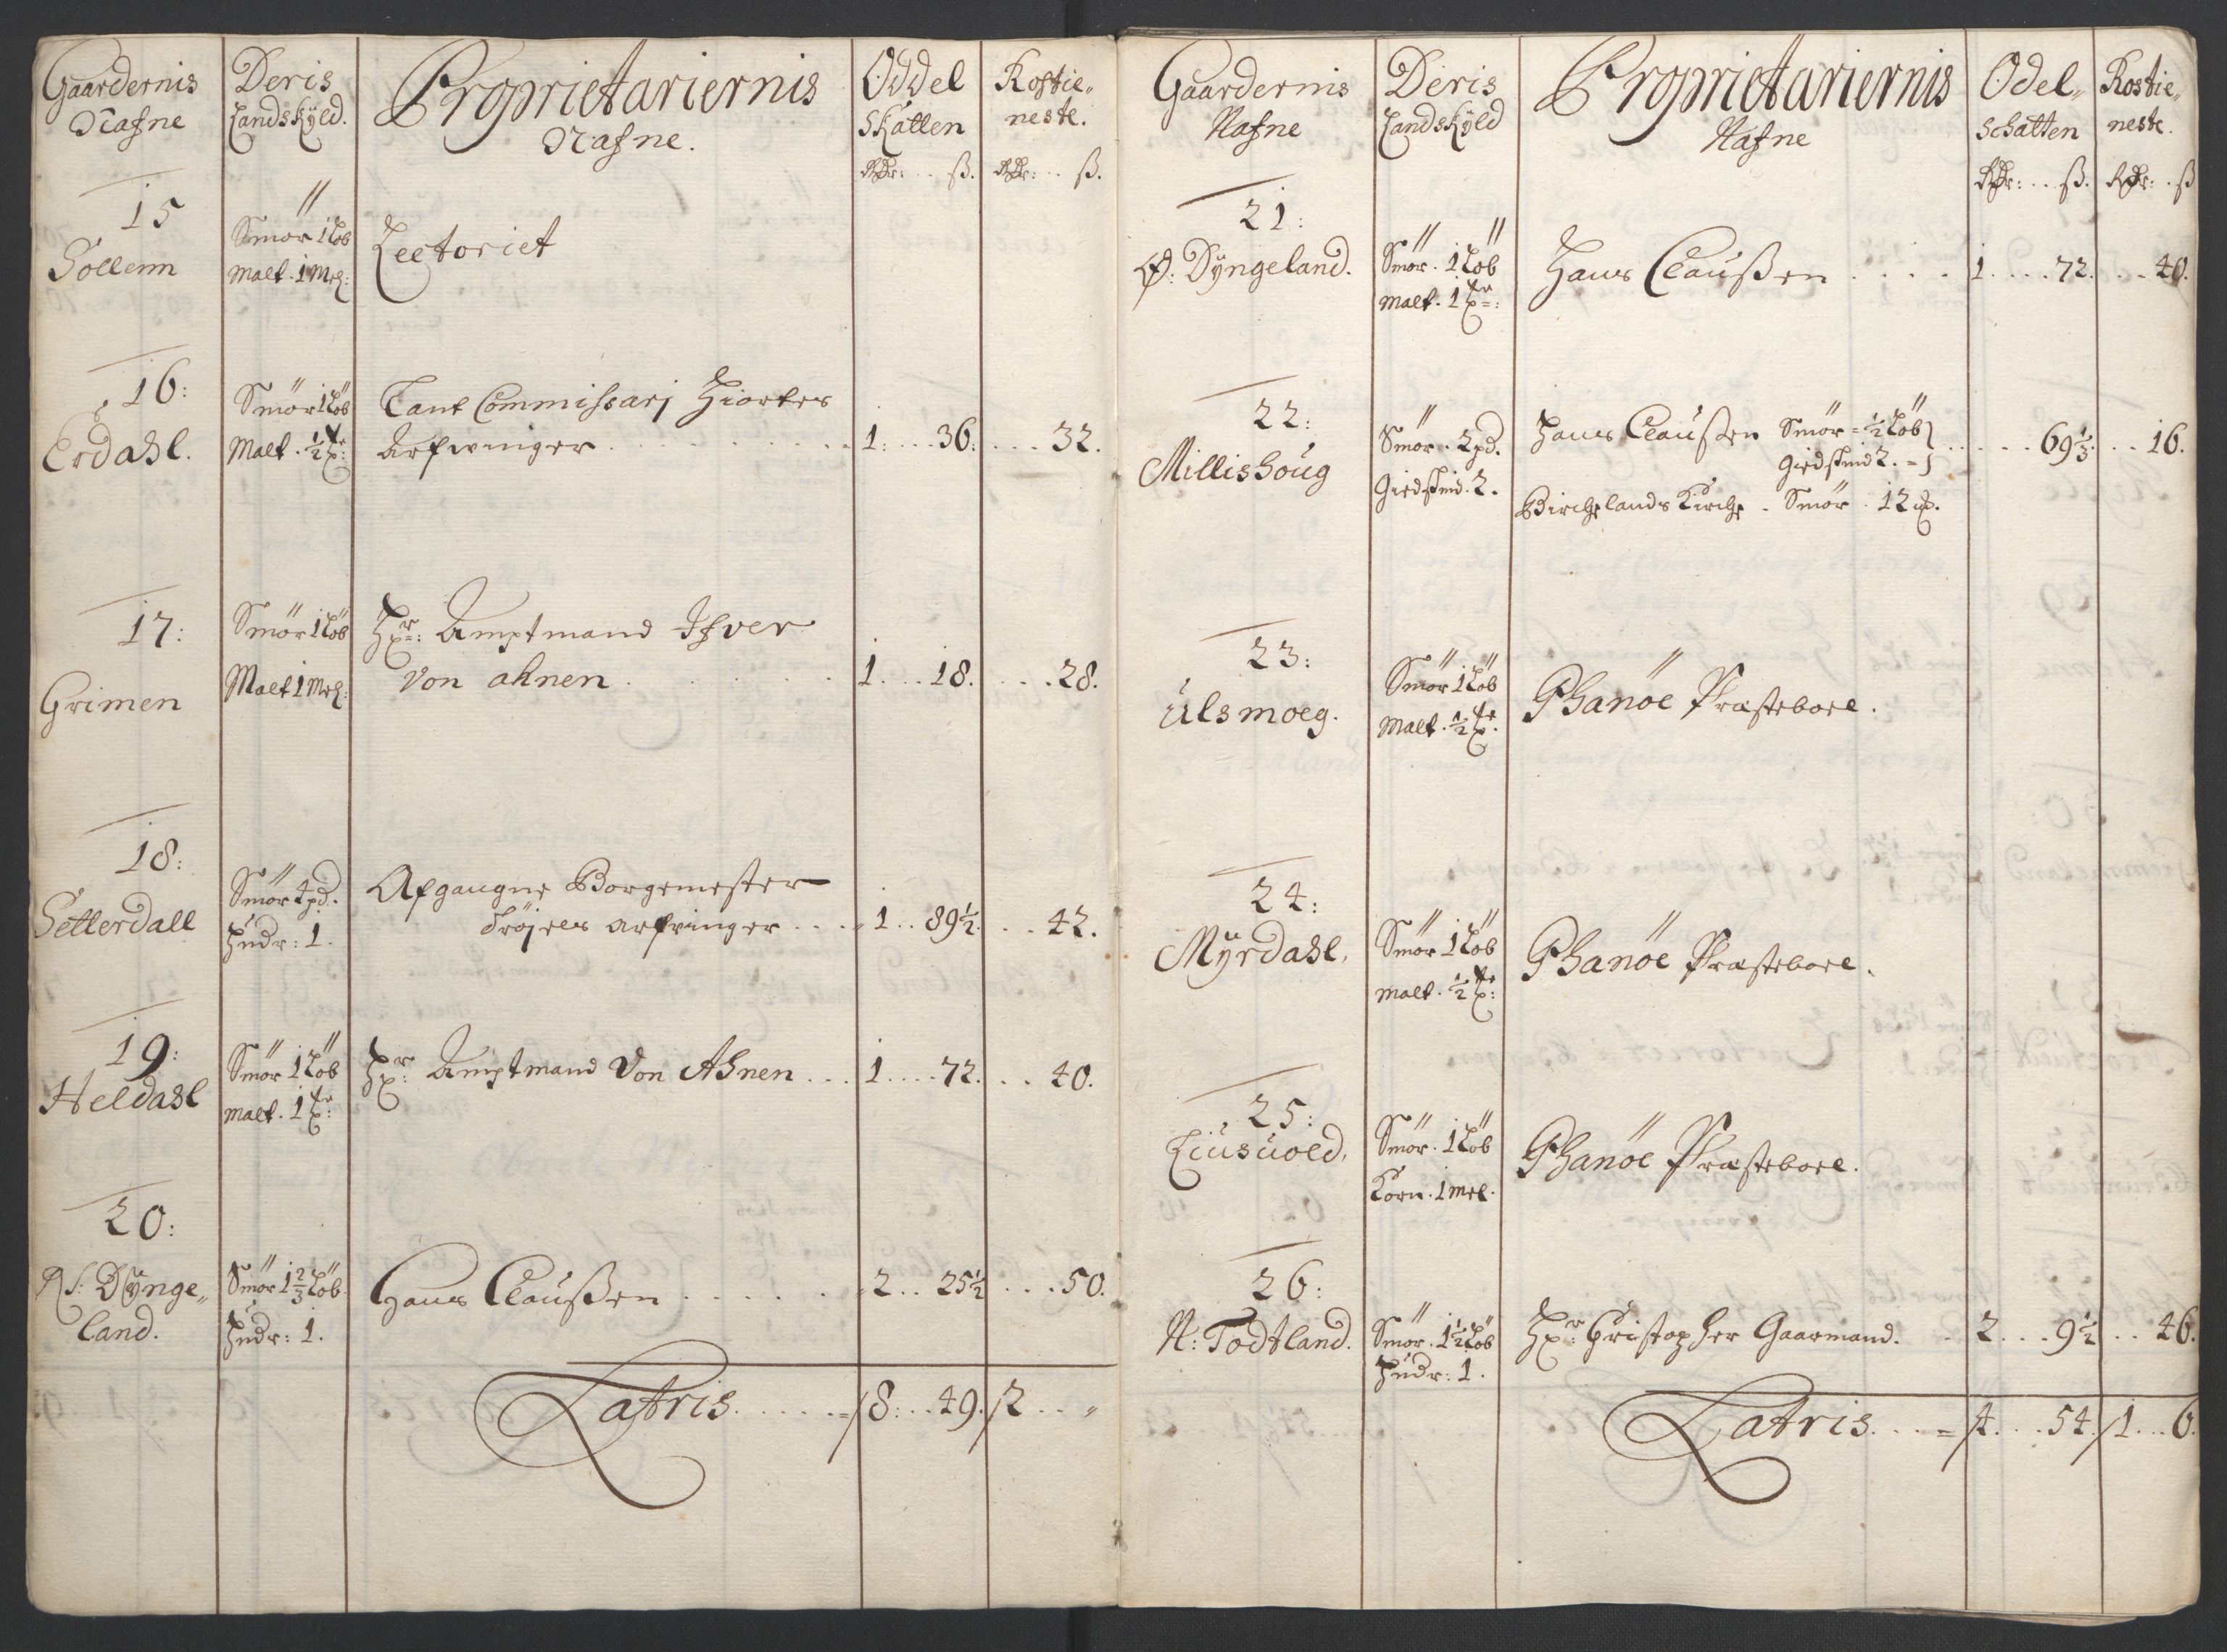 Gaardernis Nafne
Deris Landskÿld.
Proprietariernis Nafne.
Oddel Skatten
Rostie„ neste.
Rdr: . . ß.
Rdr: . . ß.
15
Sollenn
Smör 1 Löb
Malt . 1 Mel:
Lectoriet
16:
Erdahl.
Smör 1 Löb
Malt . ½ tr:
Cant Commissarj Hiortes
Arfwinger . . . . . 1: . . . 36: . . . 32.
17:
Grimen
Smör 1 Löb
Malt 1 Mel:
Hr: Amptmand Ifver
Von ahnen . . . . . 1 . . . 18. . . . 28.
18:
Setterdall
Smör 4 pd.
Hudr: 1.
Afgangne Borgemester
Tröjels arfvinger . . . 1 . . 89½. . . 42.
19:
Heldahl
Smör 1 Löb
Malt . 1 tr:
Hr: Amptmand Von Ahnen . . . 1 . . . . 72. . . 40.
20:
N: Dÿnge„
land.
Smör 1⅔ Löb.
Hudr: 1.
Hans Claußen . . . . . 2 . . 25½ . . . 50.
Latris . . . . . 8: . . 49. 2 . . „
Gaardernis Nafne
Deris Landskÿld
Proprietariernis Nafne
Odel„ schatten
Rostie„ neste.
Rdr: . . ß.
Rdr: . ß
21:
Ø: Dÿngeland.
Smör . 1 Löb
Malt . 1 tr:
Hans Claußen . . . . 1 . . . . 72. . . 40.
22:
Millishoug
Smör . 2 pd.
Giedskind . 2.
Hans Claußen Smör = ½ Löb
Giedskind 2. = . . . . 69⅓. . . 16.
Birchelands Kirche . Smör . 12 .
23:
Ulsmoeg.
Smör 1 Löb
Malt . ½ tr.
Phanöe Præsteboel.
24:
Mÿrdahl.
Smör 1 Löb
Malt . ½ tr:
Phanöe Præsteboel.
25:
Liusuold.
Smör . 1 Löb
Korn . 1 Mel.
Phanöe Præsteboel.
26:
N: Todtland.
Smör . 1½ Löb
Hudr: 1.
Hr: Christopher Gaarmand. . 2 . . . 9½ . . 46.
Latris . . . . 4 . . . 54. 1 . . . 6.